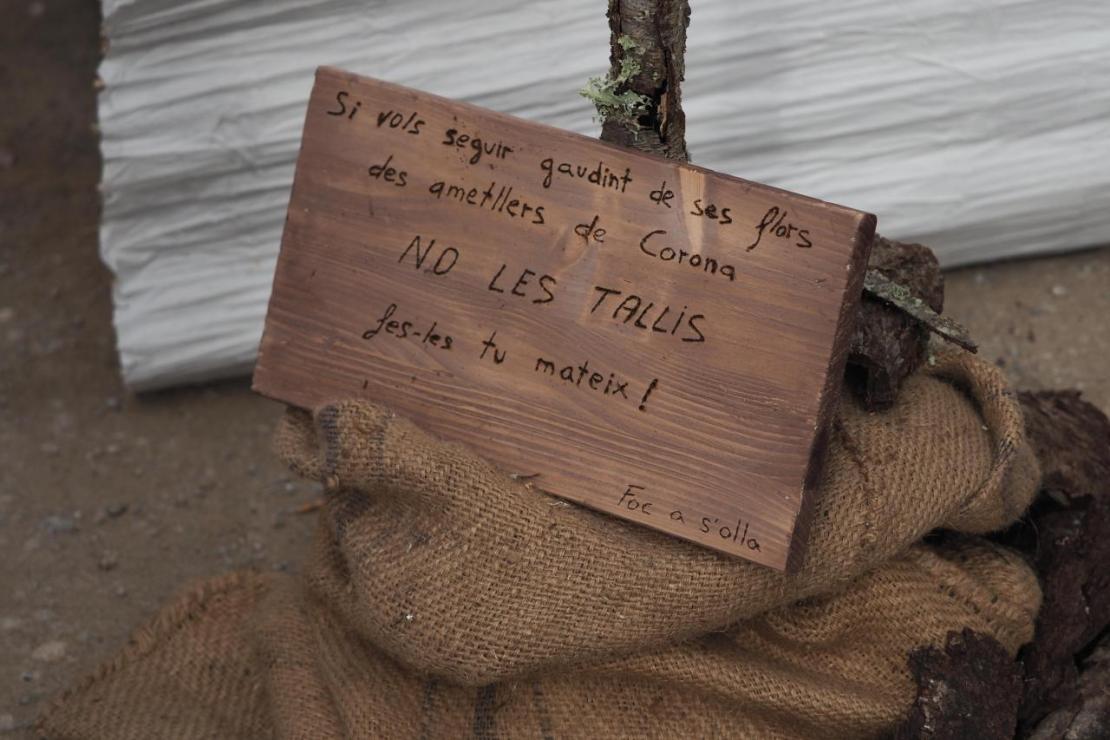 Si vols seguir gaudint de ses flors
des ametllers de Corona
NO LES TALLIS
fes-les tu mateix!
Foc a s'olla